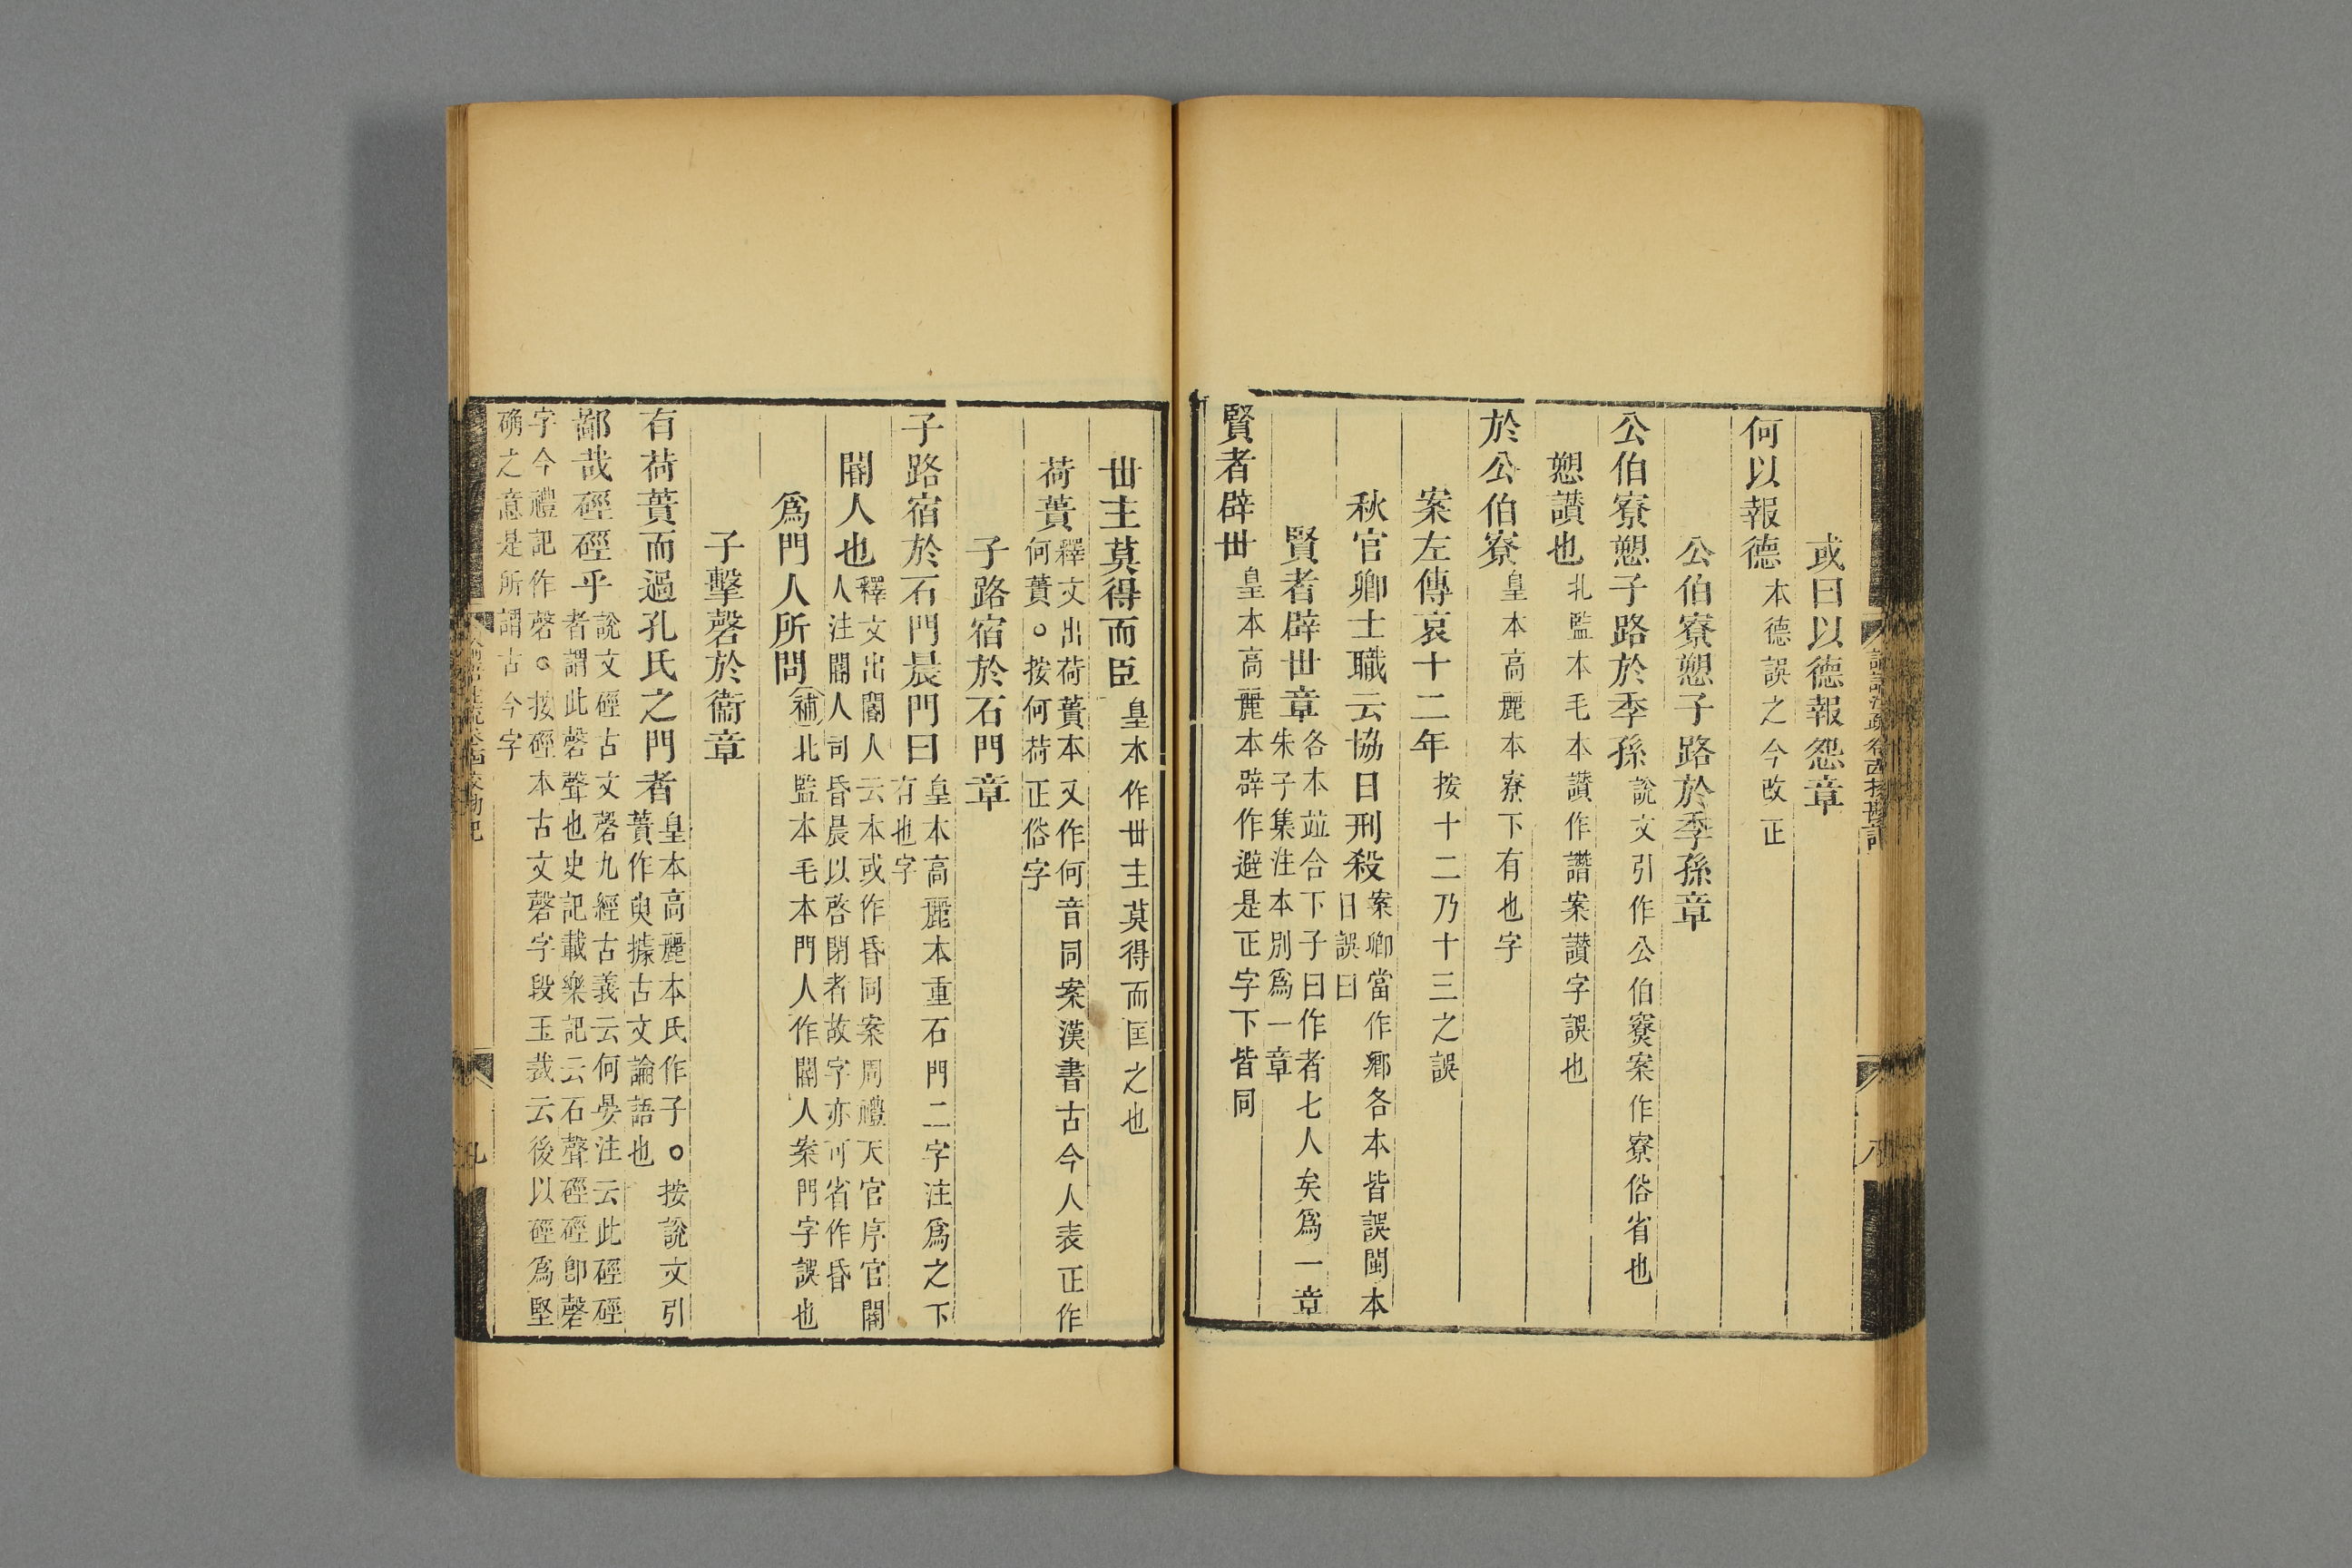 或曰以德報怨章
何以報德本德誤之今改正
公伯寮愬子路於季孫章
公伯寮愬子路於季孫說文引作公伯寮案作寮俗省也
愬讃也北監本毛本讃作譖案讃字誤也
於公伯寮皇本高麗本寮下有也字
案左傳哀十二年按十二乃十三之誤
秋官卿士職云協日刑殺案卿當作鄉各本皆誤閩本日誤曰
賢者辟世章各本並合下子曰作者七人矣爲一章朱子集注本別爲一章
賢者辟世皇本高麗本辟作避是正字下皆同
世主莫得而臣皇本作世主莫得而匡之也
荷蕢釋文出荷蕢本又作何音同案漢書古今人表正作何蕢○按何荷正俗字
子路宿於石門章
子路宿於石門晨門曰皇本高麗本重石門二字注爲之下有也字
閽人也釋文出閽人云本或作昏同案周禮天官序官閽人注閽人司昏晨以啓閉者故字亦可省作昏
爲門人所問補北監本毛本門人作閽人案門字誤也
子擊磬於衞章
有荷蕢而過孔氏之門者皇本高麗本氏作子○按說文引蕢作臾據古文論語也
鄙哉硜硜乎說文硜古文磬九經古義云何晏注云此硜硜者謂此磬聲也史記載樂記云石聲硜硜卽磬
字今禮記作磬○按硜本古文磬字段玉裁云後以硜爲堅
确之意是所謂古今字